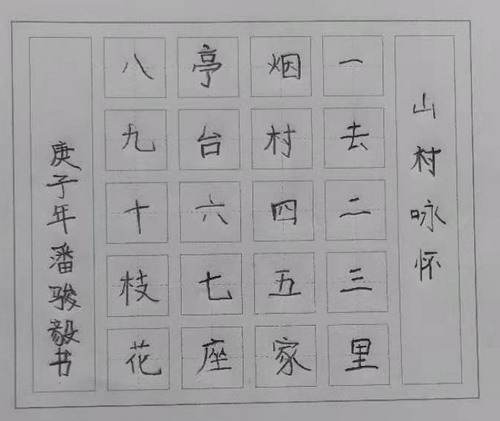 山村咏怀
一去二三里
烟村四五家
亭台六七座
八九十枝花
庚子年潘骏毅书